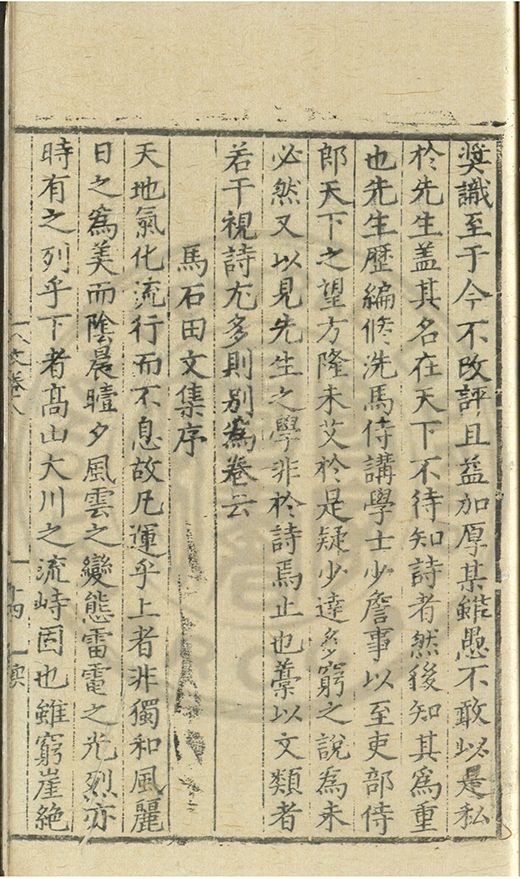 奬識至于今不改評且益加厚某雖愚不敢以是私
於先生盖其名在天下不待知詩者然後知其為重
也先生歷編修洗馬侍講學士少詹事以至吏部侍
郎天下之望方隆未艾於是疑少達多窮之說為未
必然又以見先生之學非於詩焉止也藁以文類者
若干視詩尤多則別為卷云
馬石田文集序
天地氣化流行而不息故凡運乎上者非獨和風麗
日之為美而陰晨曀夕風雲之變態雷電之光烈亦
時有之列乎下者高山大川之流峙固也雖窮崖絶
文卷八
十四